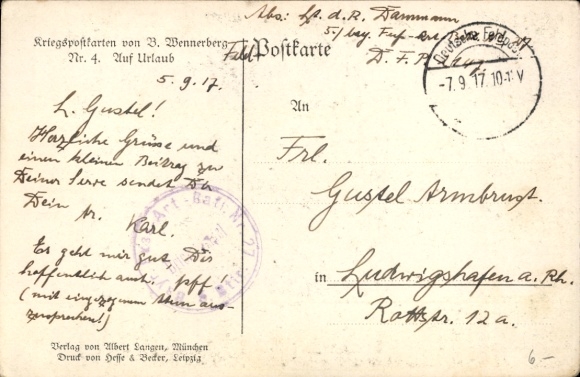 Kriegspostkarten von B. Wennerberg
Nr. 4. Auf Urlaub
Abs: Lt. d. R. Dammann
5./bay. Fuß-art. Batl. 27
D. F. P.
Feldpostkarte
Deutsche Feldpost
-7.9.17.10-11V
5.9.17.
L. Gustel!
Herzliche Grüsse und
einen kleinen Beitrag zu
Deiner Serie sendet Dir
Dein
Karl.
Es geht mir gut Dir
hoffentlich auch. pff!
(mit eingezogenem Atem aus-
zusprechen!)
Art. Batl. Nr. 27
An
Frl.
Gustel Armbrust.
in Ludwigshafen a. Rh.
Rottstr. 12a.
Verlag von Albert Langen, München
Druck von Hesse & Becker, Leipzig
6-